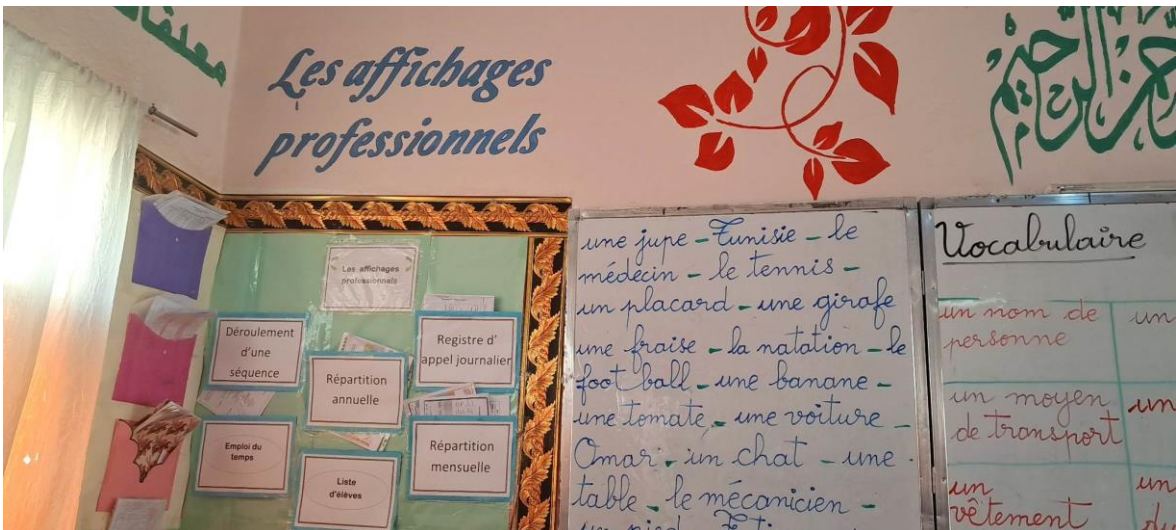 معلقات
Les affichages
professionnels
الرحمن الرحيم
Les affichages
professionnels
Déroulement
d'une
séquence
Répartition
annuelle
Registre d'
appel journalier
Emploi du
temps
Liste
d'élèves
Répartition
mensuelle
une jupe - Tunisie - le
médecin - le tennis -
un placard - une girafe
une fraise - la natation - le
foot ball - une banane -
une tomate - une voiture -
Omar - un chat - une
table - le mécanicien -
un pied
Vocabulaire
un nom de
personne
un
un moyen
de transport
un
un
vêtement
un
d